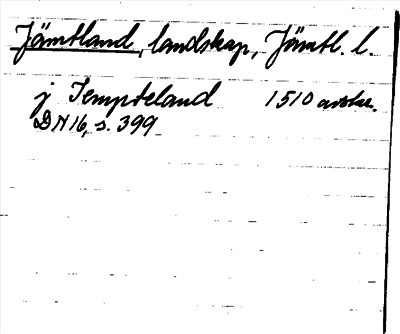 Jämtland, landskap, Jämtl. l.
j Jempteland 1510 avskr.
DN 16, s. 399